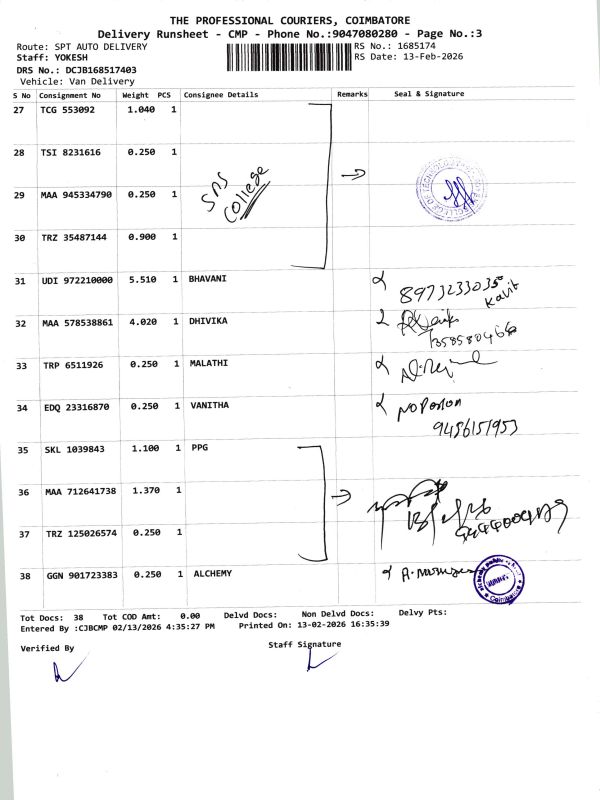 THE PROFESSIONAL COURIERS, COIMBATORE
Delivery Runsheet - CMP - Phone No.:9047080280 - Page No.:3
Route: SPT AUTO DELIVERY
RS No.: 1685174
Staff: YOKESH
RS Date: 13-Feb-2026
DRS No.: DCJB168517403
Vehicle: Van Delivery
S No Consignment No Weight PCS Consignee Details Remarks Seal & Signature
27 TCG 553092 1.040 1
28 TSI 8231616 0.250 1
SNS College
29 MAA 945334790 0.250 1
30 TRZ 35487144 0.900 1
31 UDI 972210000 5.510 1 BHAVANI
8973233035
32 MAA 578538861 4.020 1 DHIVIKA
33 TRP 6511926 0.250 1 MALATHI
34 EDQ 23316870 0.250 1 VANITHA
9456151953
35 SKL 1039843 1.100 1 PPG
36 MAA 712641738 1.370 1
37 TRZ 125026574 0.250 1
38 GGN 901723383 0.250 1 ALCHEMY
Tot Docs: 38 Tot COD Amt: 0.00 Delvd Docs: Non Delvd Docs: Delvy Pts:
Entered By :CJBCMP 02/13/2026 4:35:27 PM Printed On: 13-02-2026 16:35:39
Verified By
Staff Signature